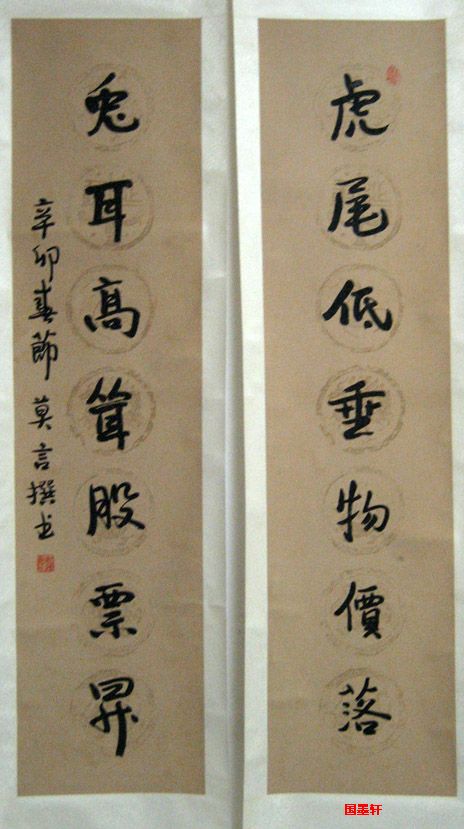 虎尾低垂物價落
兔耳高耸股票昇
辛卯春節 莫言撰书
国墨轩